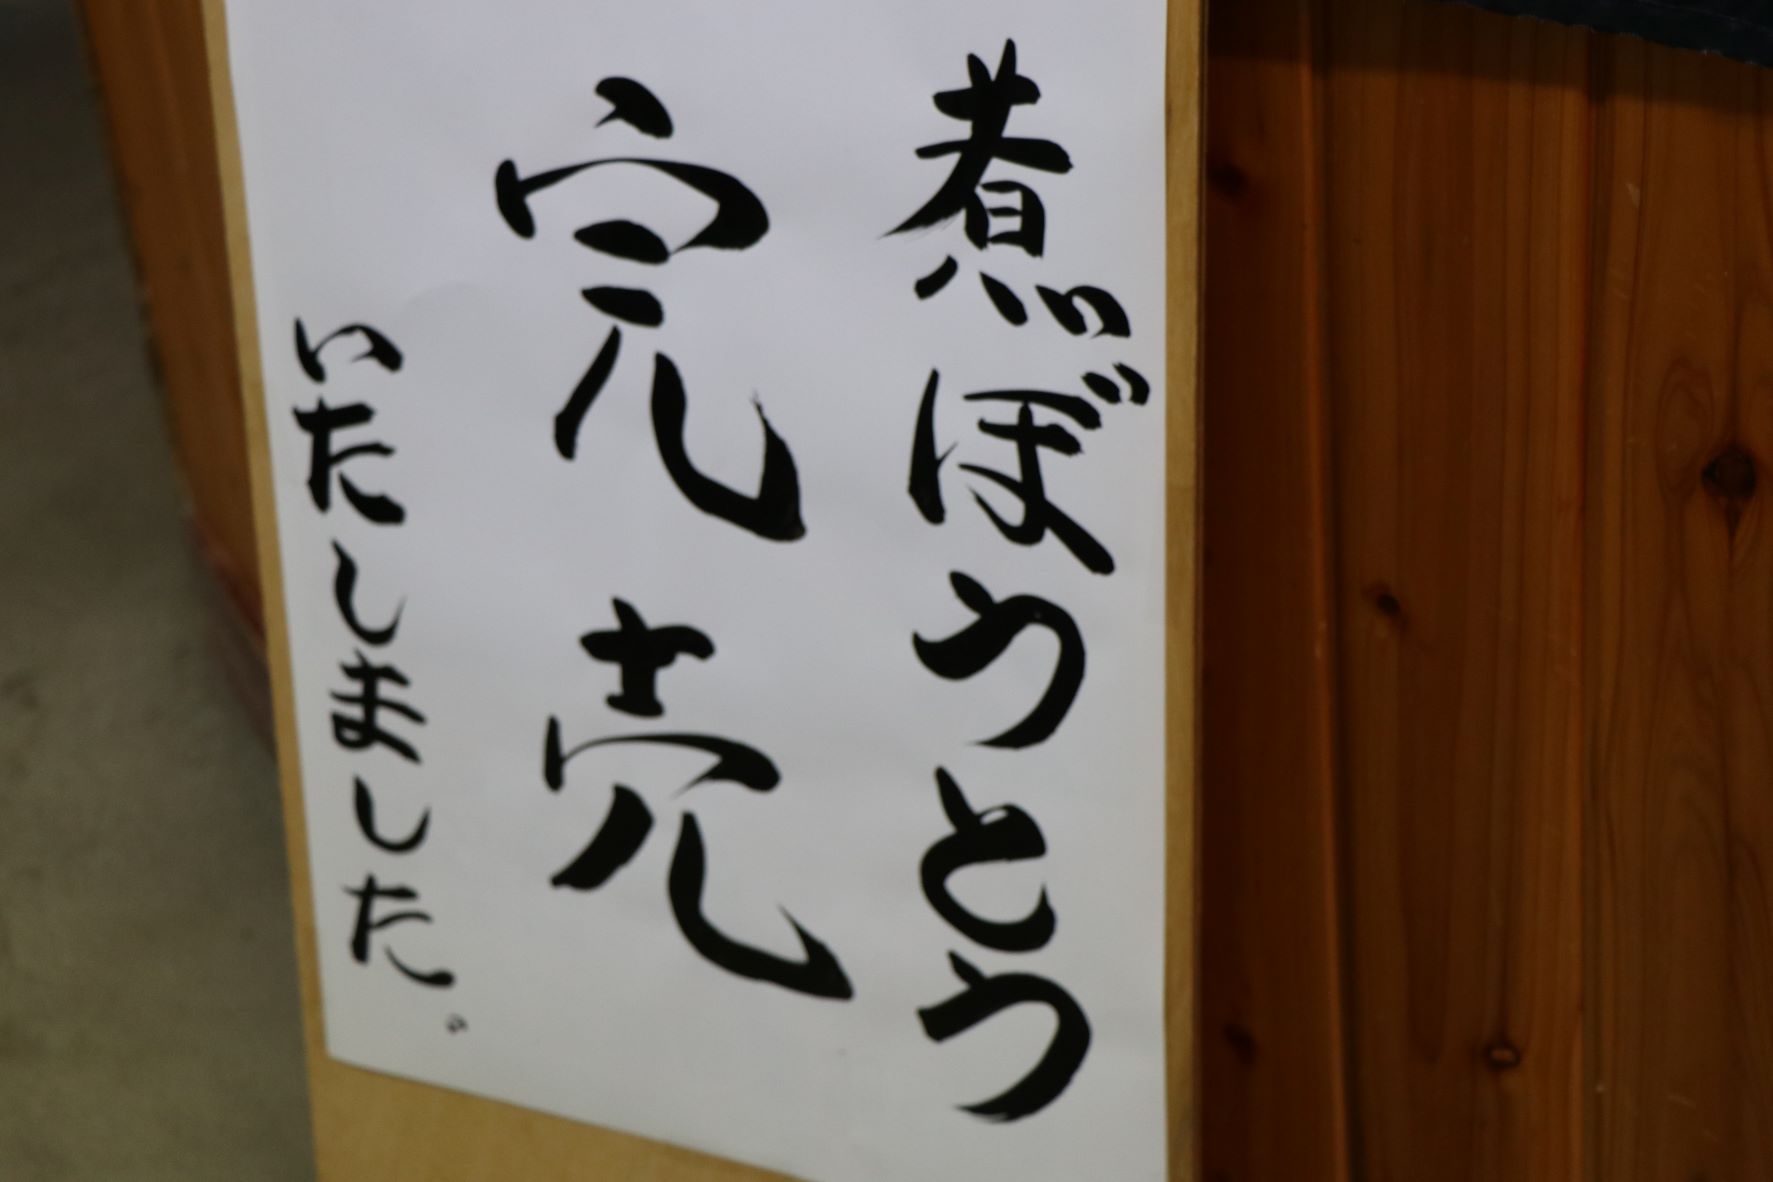 煮ぼうとう
完売
いたしました。